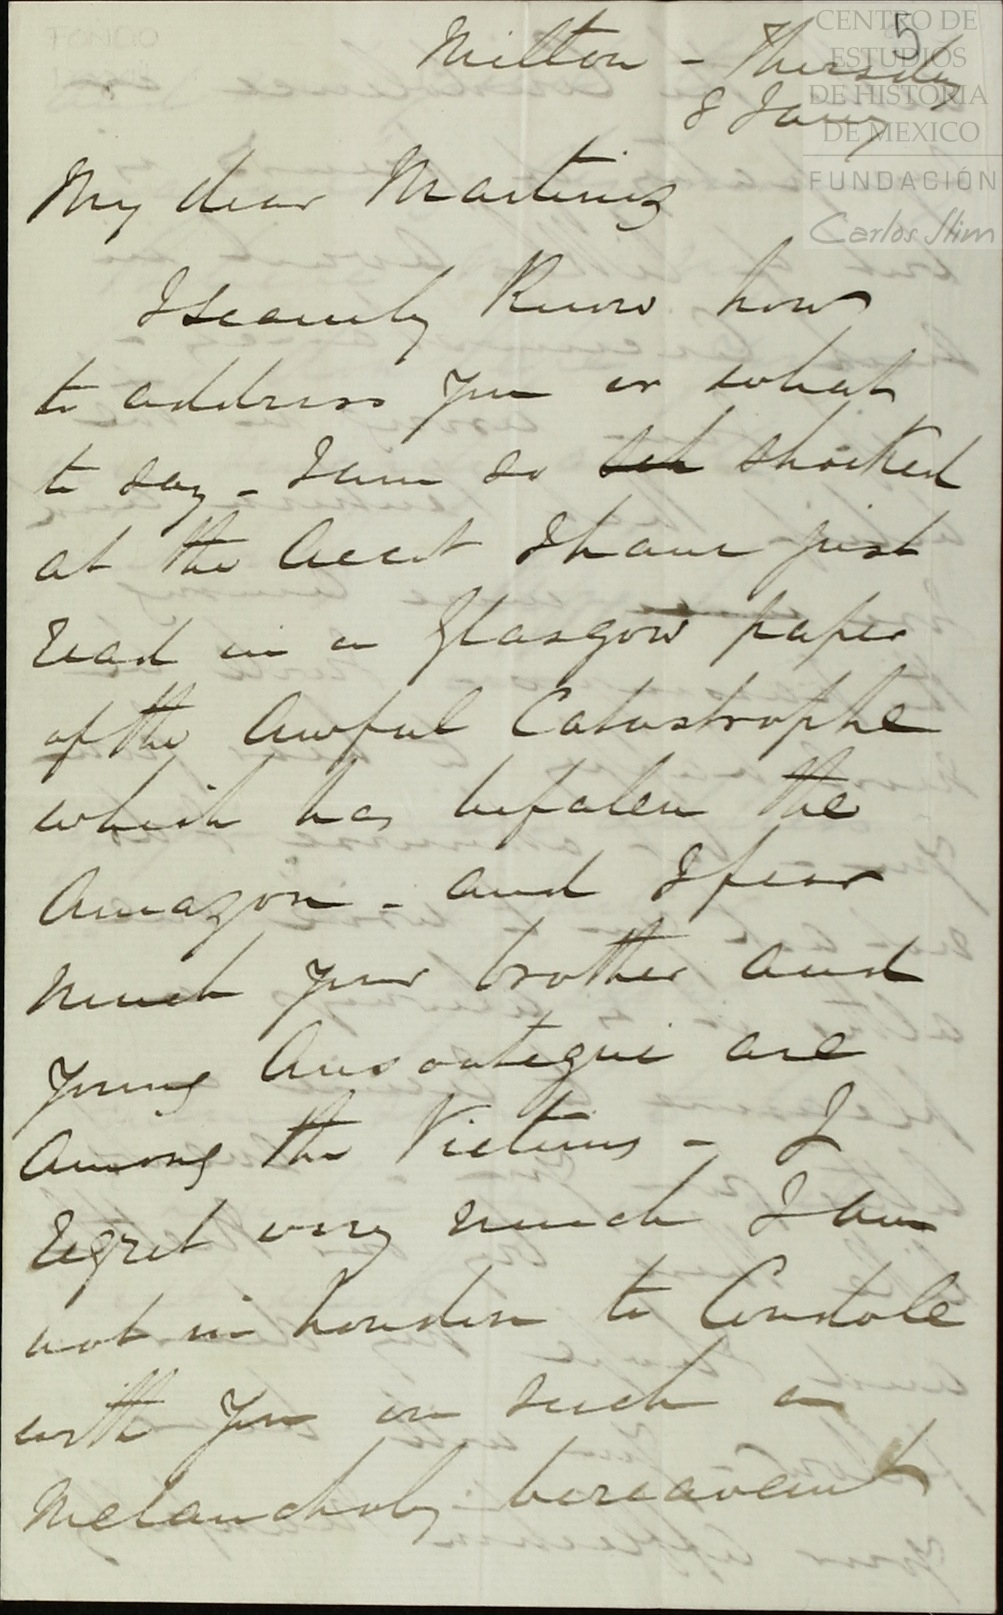 5
CENTRO DE
ESTUDIOS
DE HISTORIA
DE MEXICO
FUNDACIÓN
Carlos Slim
Milton - Thursday
8 Jany
My dear Martinez
I scarcely Know how
to address you or what
to say - I am so shocked
at the Acct I have just
read in a Glasgow paper
of the Awful Catastrophe
which has befalen the
Amazon - and I fear
much your brother and
young Ansoategui are
Among the Victims - I
regret very much I am
not in London to Condole
with you on such a
Melancholy bereavent